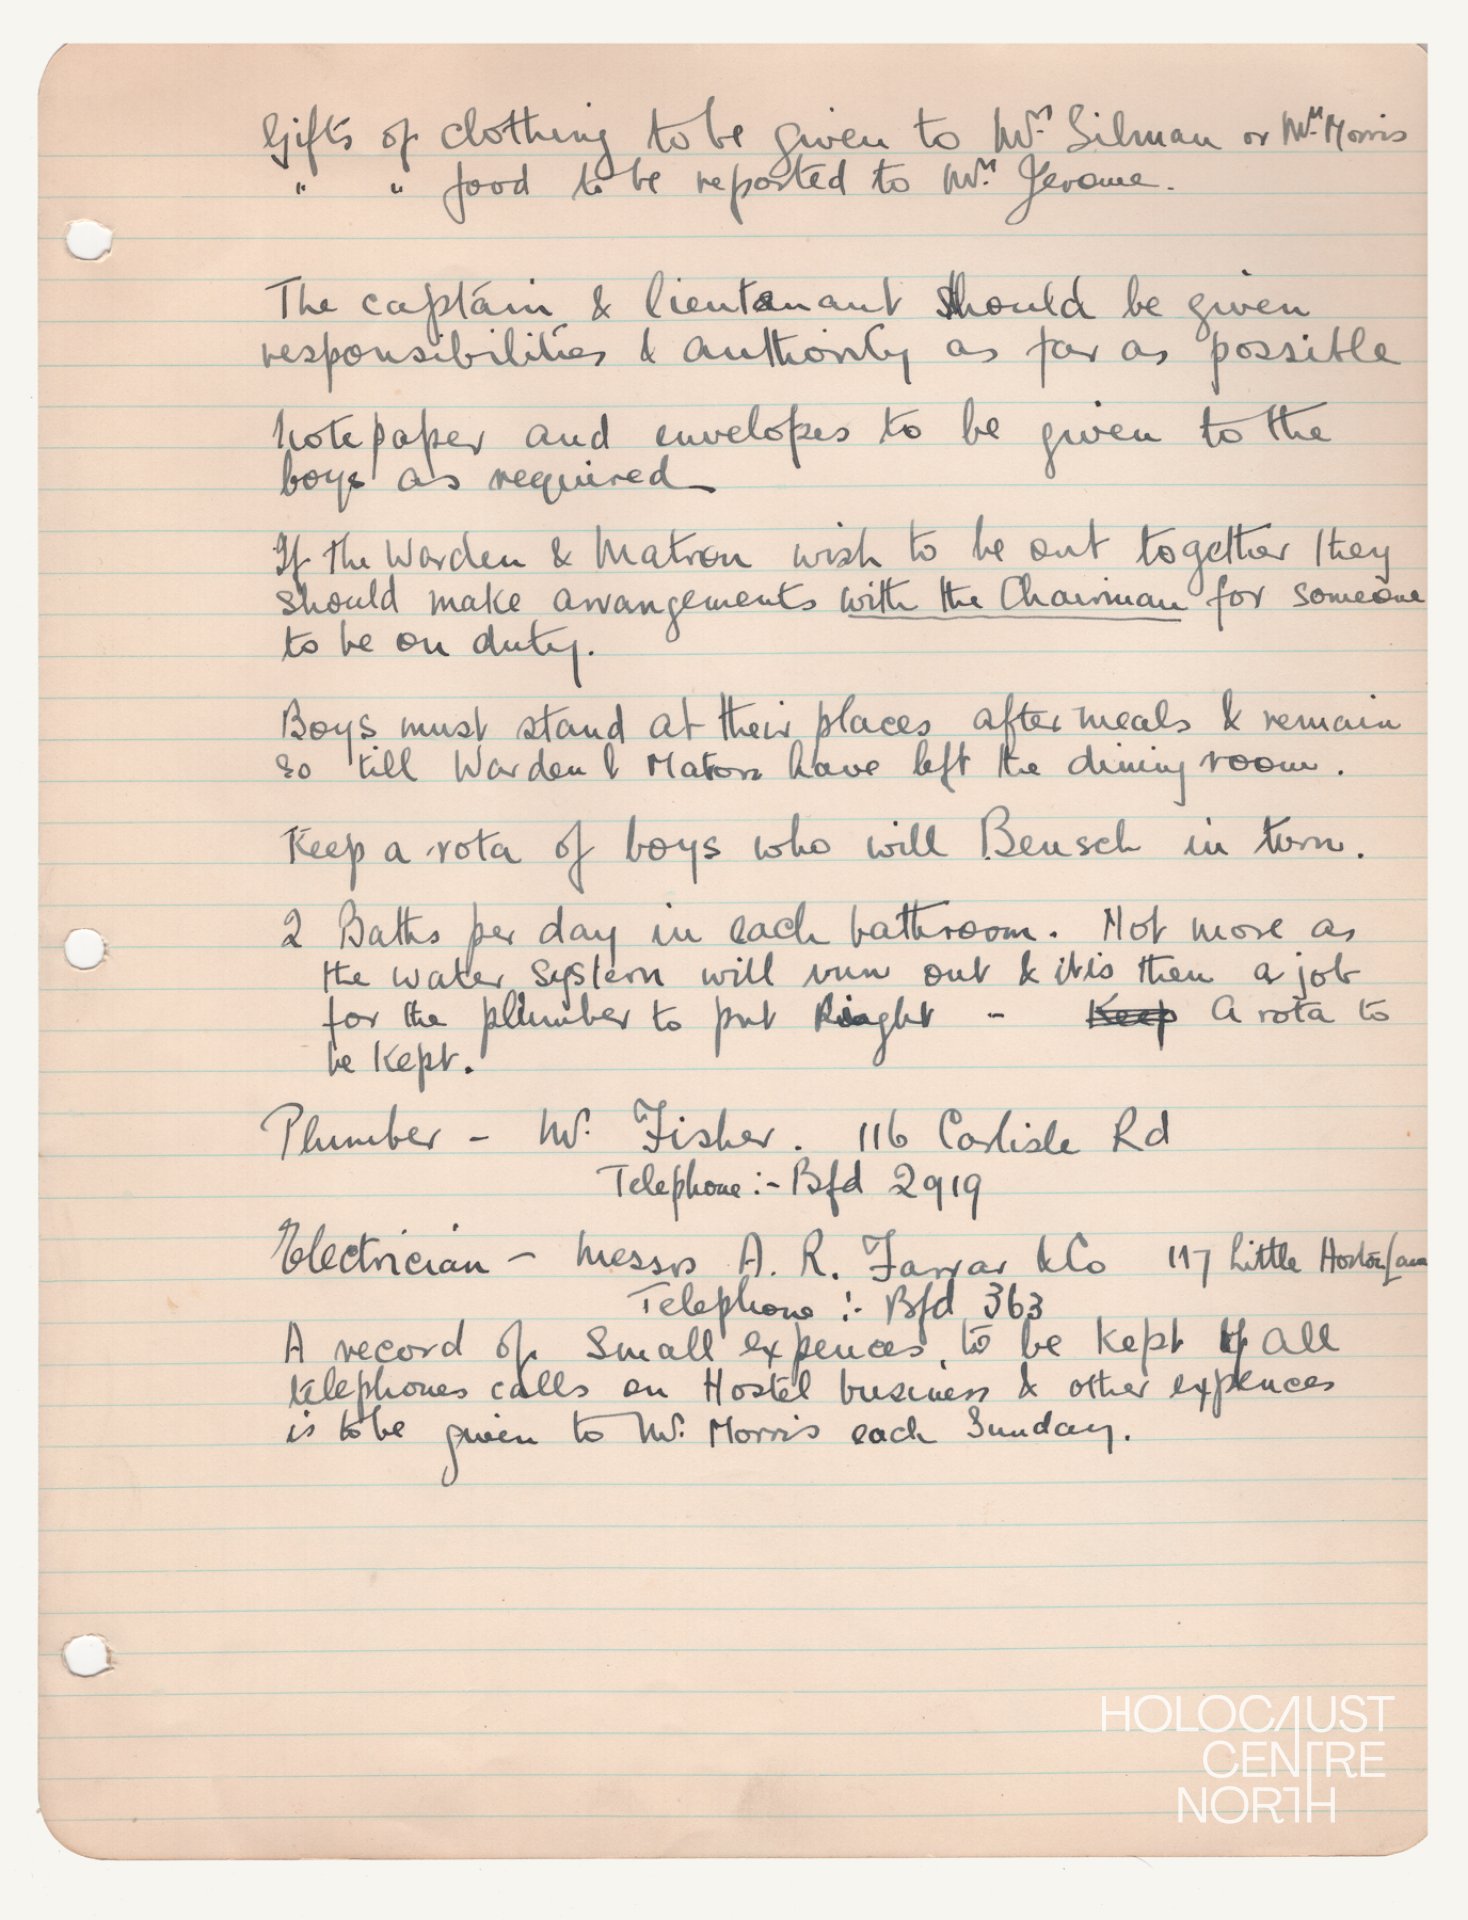 Gifts of clothing to be given to Mrs Silman or Mrs Morris
" " food to be reported to Mrs Jerome.
The captain & lieutenant should be given
responsibilities & authority as far as possible
Notepaper and envelopes to be given to the
boys as required
If the Warden & Matron wish to be out together they
should make arrangements with the Chairman for someone
to be on duty.
Boys must stand at their places after meals & remain
so till Warden & Matron have left the dining room.
Keep a rota of boys who will Bensch in turn.
2 Baths per day in each bathroom. Not more as
the water system will run out & it is then a job
for the plumber to put Right - Keep A rota to
be kept.
Plumber - Mr. Fisher. 116 Carlisle Rd
Telephone:- Bfd 2919
Electrician - Messrs A. R. Farrar & Co 117 Little Horton Lane
Telephone :- Bfd 363
A record of small expences, to be kept of all
telephones calls on Hostel business & other expences
is to be given to Mr. Morris each Sunday.
HOLOCAUST
CENTRE
NORTH